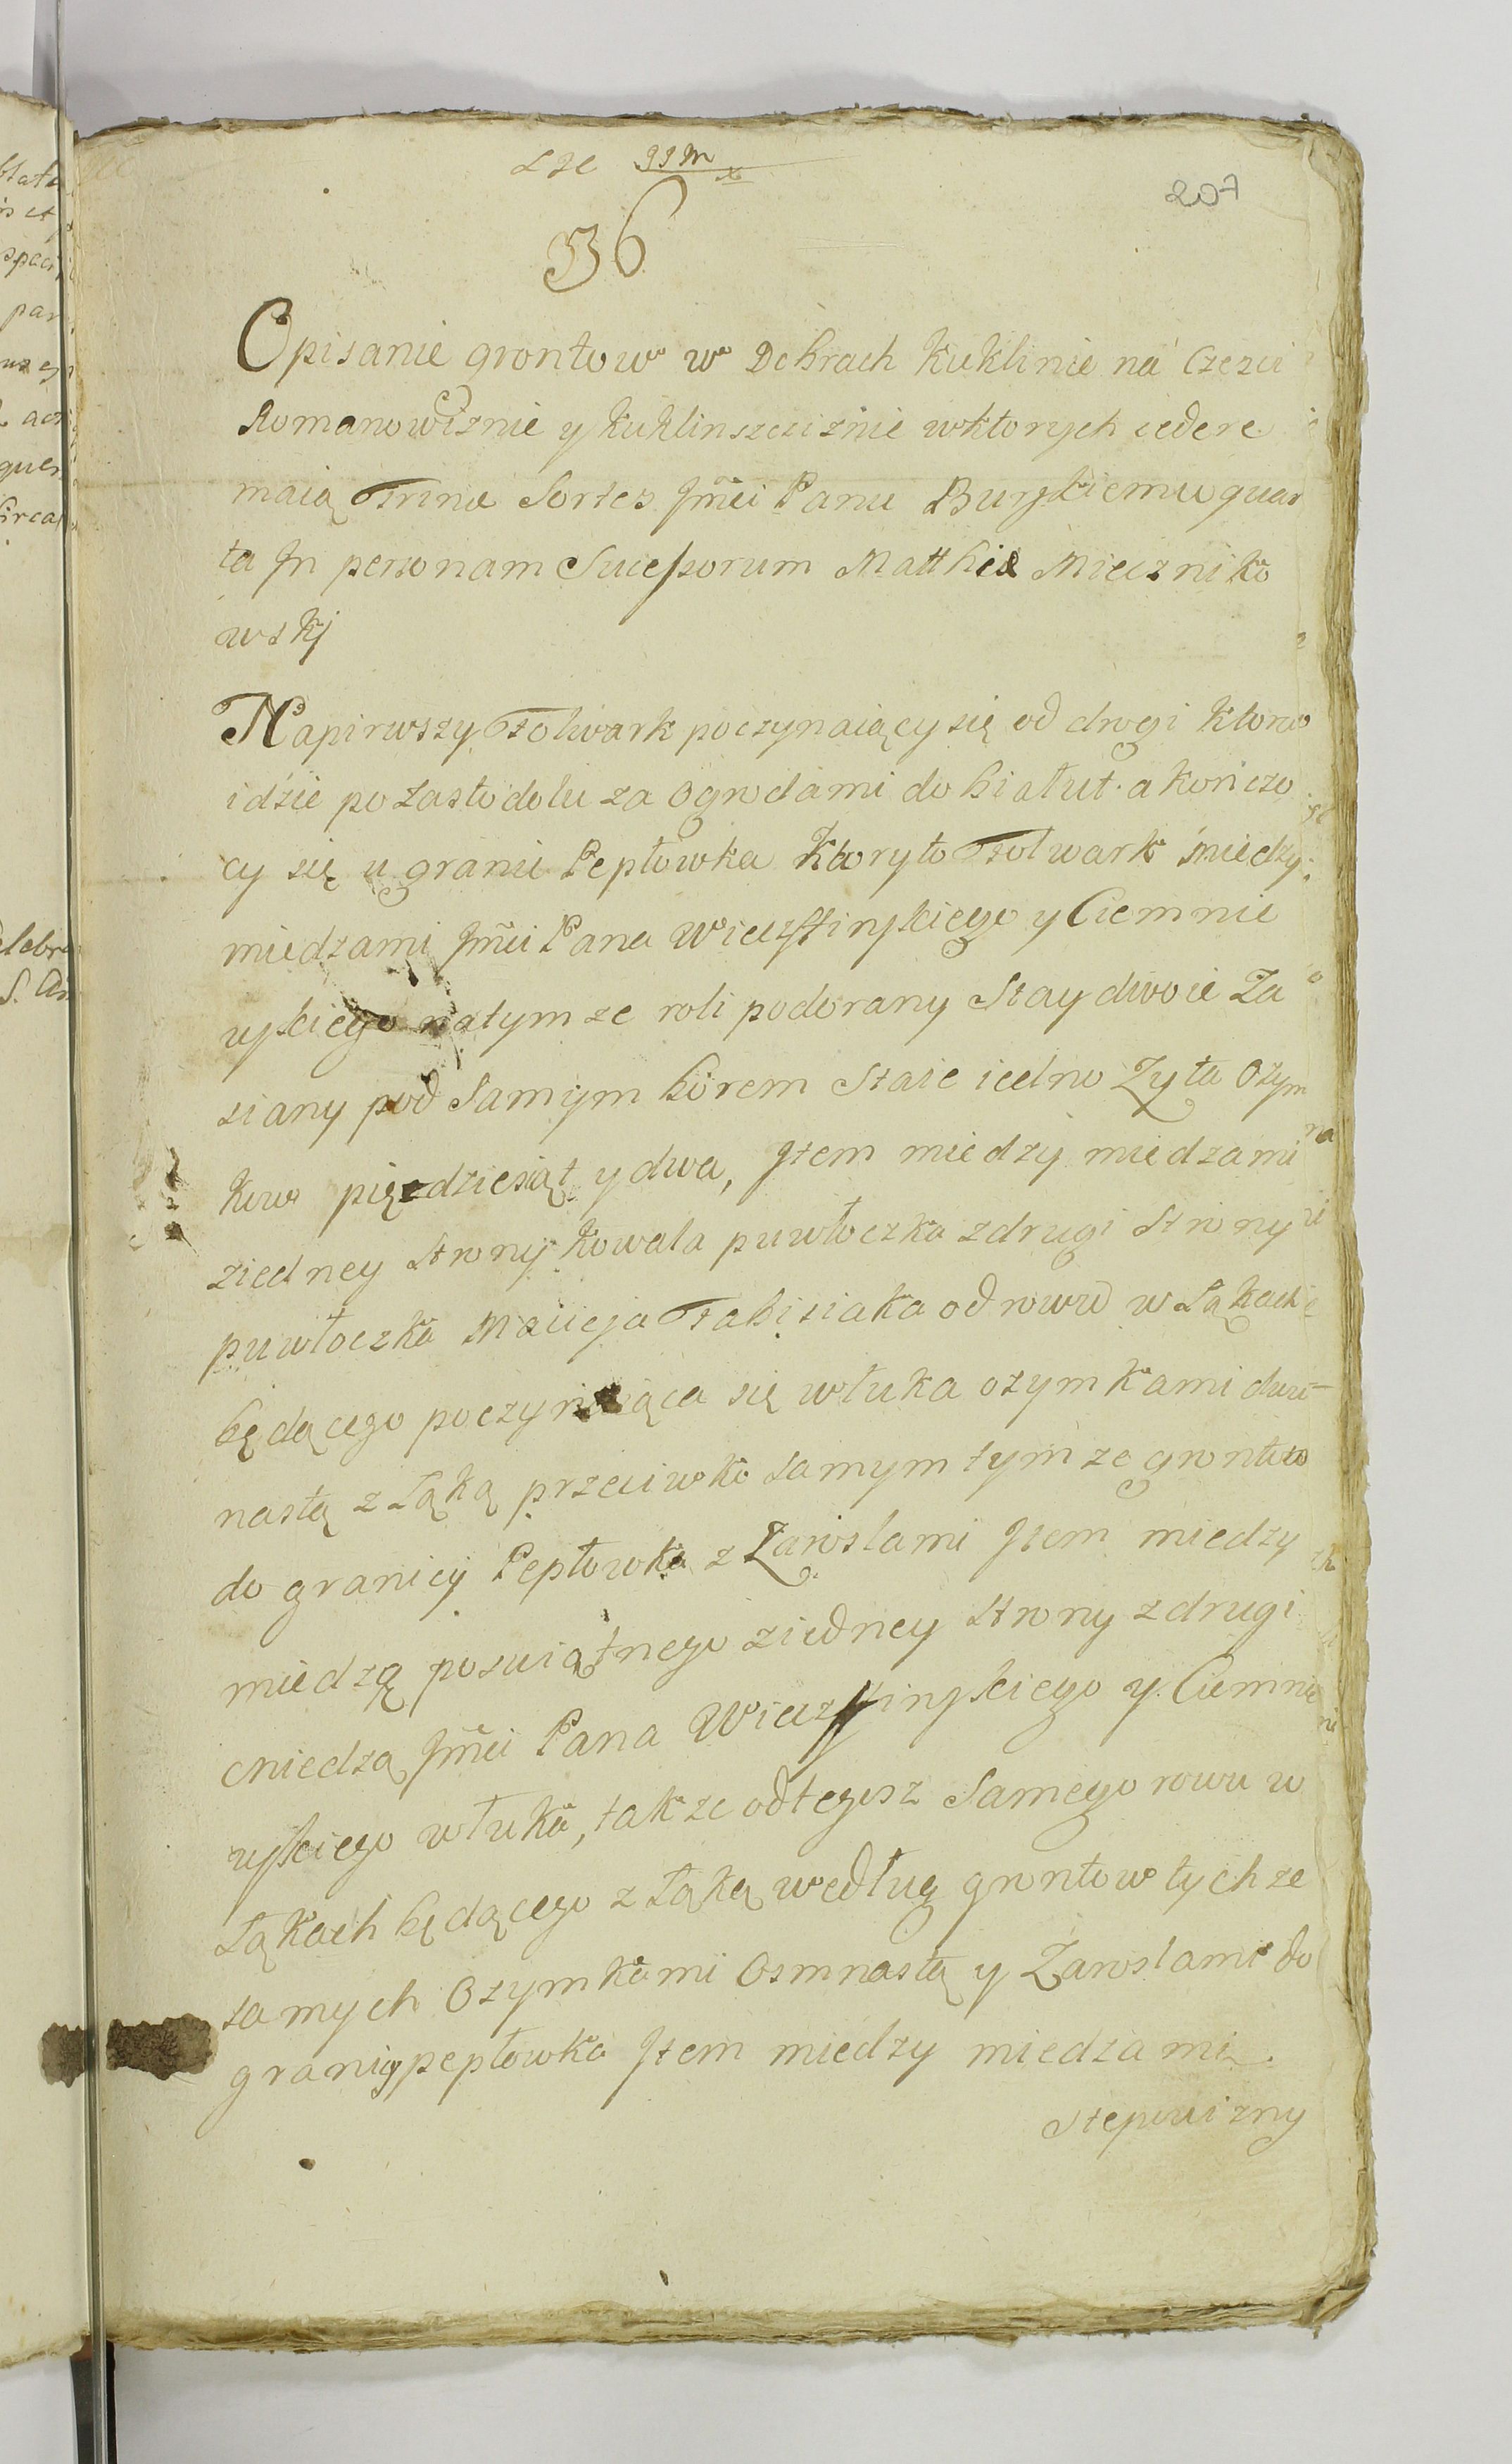 207
36
Opisanie grontow w Dobrach Kuklinie na Czezci
Romanowiznie y Kuklinszcziznie wktorych cedere
maią Trina Sortes Jmci Panu Burskiemu quar
ta Jn personam Sucessorum Matthiæ Mieczniko
wskj
Napirwszy Folwark poczynaiący się od drogi ktora
idzie po Zastodolu za Ogrodami do białut a konczo
cy się u granic Pepłowka Ktoryto Folwark miedzy
miedzami Jmci Pana Wieczffinskiego y Ciemnie
wskiego natymze roli podorany Stay dwoie Za
siany pod Samym borem Staie iedno Zyta Ozym
kow pięcdziesiąt y dwa, Jtem miedzy miedzami
ziedney Strony Kowala puwłoczka zdrugi Strony
puwłoczka Macieja Fabisiaka od rowu w Łąkach
będącego poczynaiąca się włuka ozymkami dwu-
nastą z Łąką przeciwko samym tymze grontow
do granicy Pepłowka z Zaroslami Jtem miedzy
miedzą poswiątnego ziedney Strony zdrugi
miedzą Jmci Pana Wieczffinskiego y Ciemnie
wskiego włuka, takze odtegosz Samego rowu w
Łąkach będącego z Łąką według grontow tychze
samych Ozymkami Osmnastą y Zaroslami do
granicy pepłowka Jtem miedzy miedzami
Stepowizny